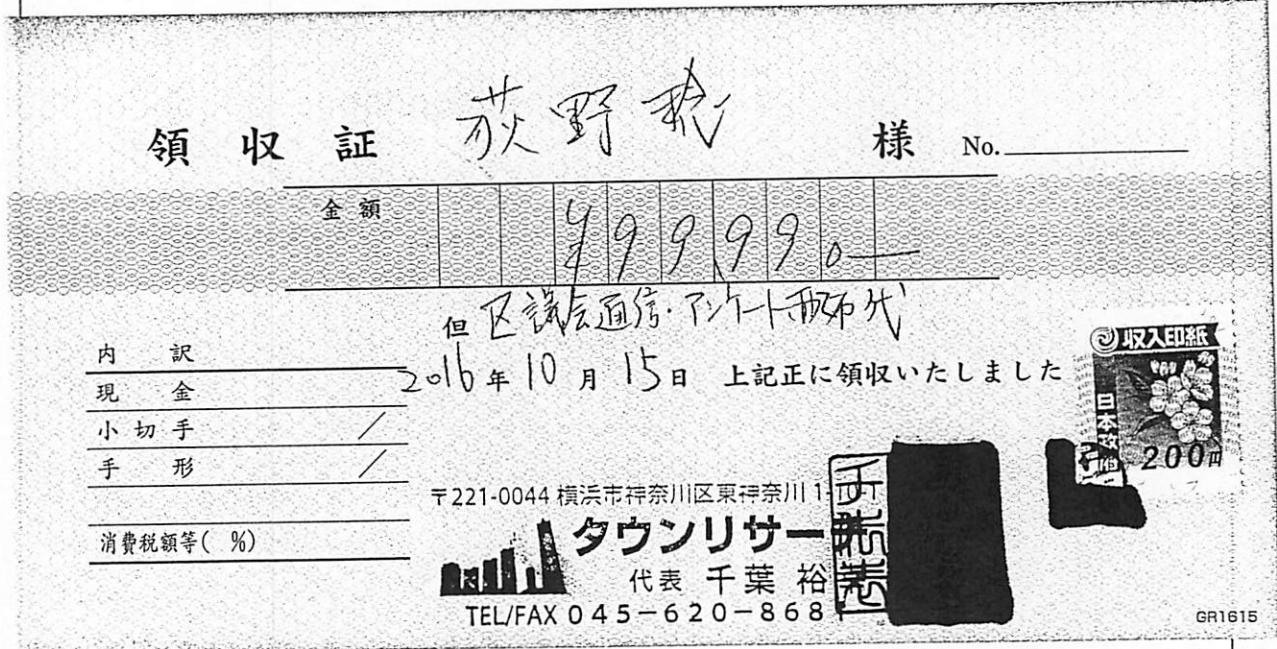 領収証 荻野稔 様 No.
金額 ¥99990
但 区議会通信・アンケート配布代
2016年10月15日 上記正に領収いたしました
内訳
現金
小切手 /
手形 /
消費税額等( %)
収入印紙
日本政府
200円
〒221-0044 横浜市神奈川区東神奈川1-10-1
タウンリサー
代表 千葉 裕
TEL/FAX 045-620-868
GR1615